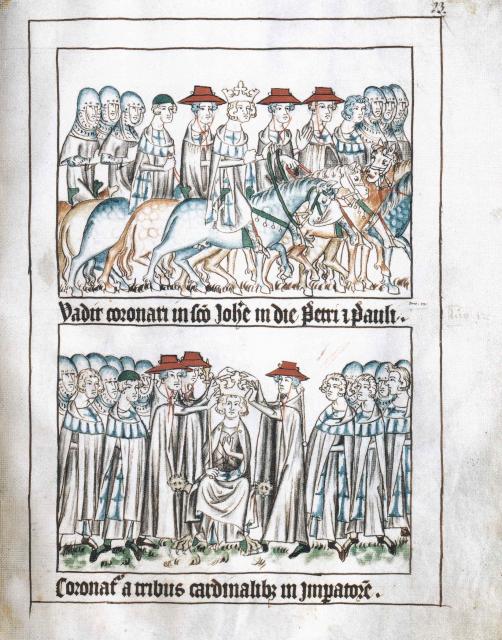 23.
Vadit coronati in sco Johe in die Petri ⁊ Pauli.
Coronat᷒ a tribus cardinalibꝫ in Imperatore.